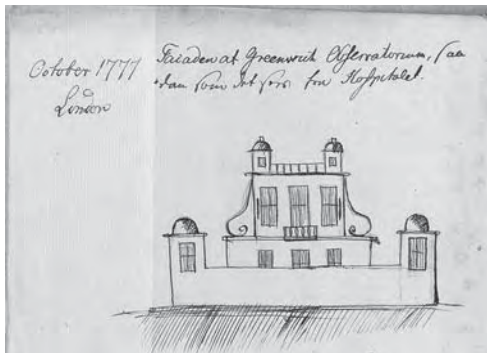 October 1777
London
Facaden at Greenwich Observatorium, saa
dan som det sees fra Hospitalet.